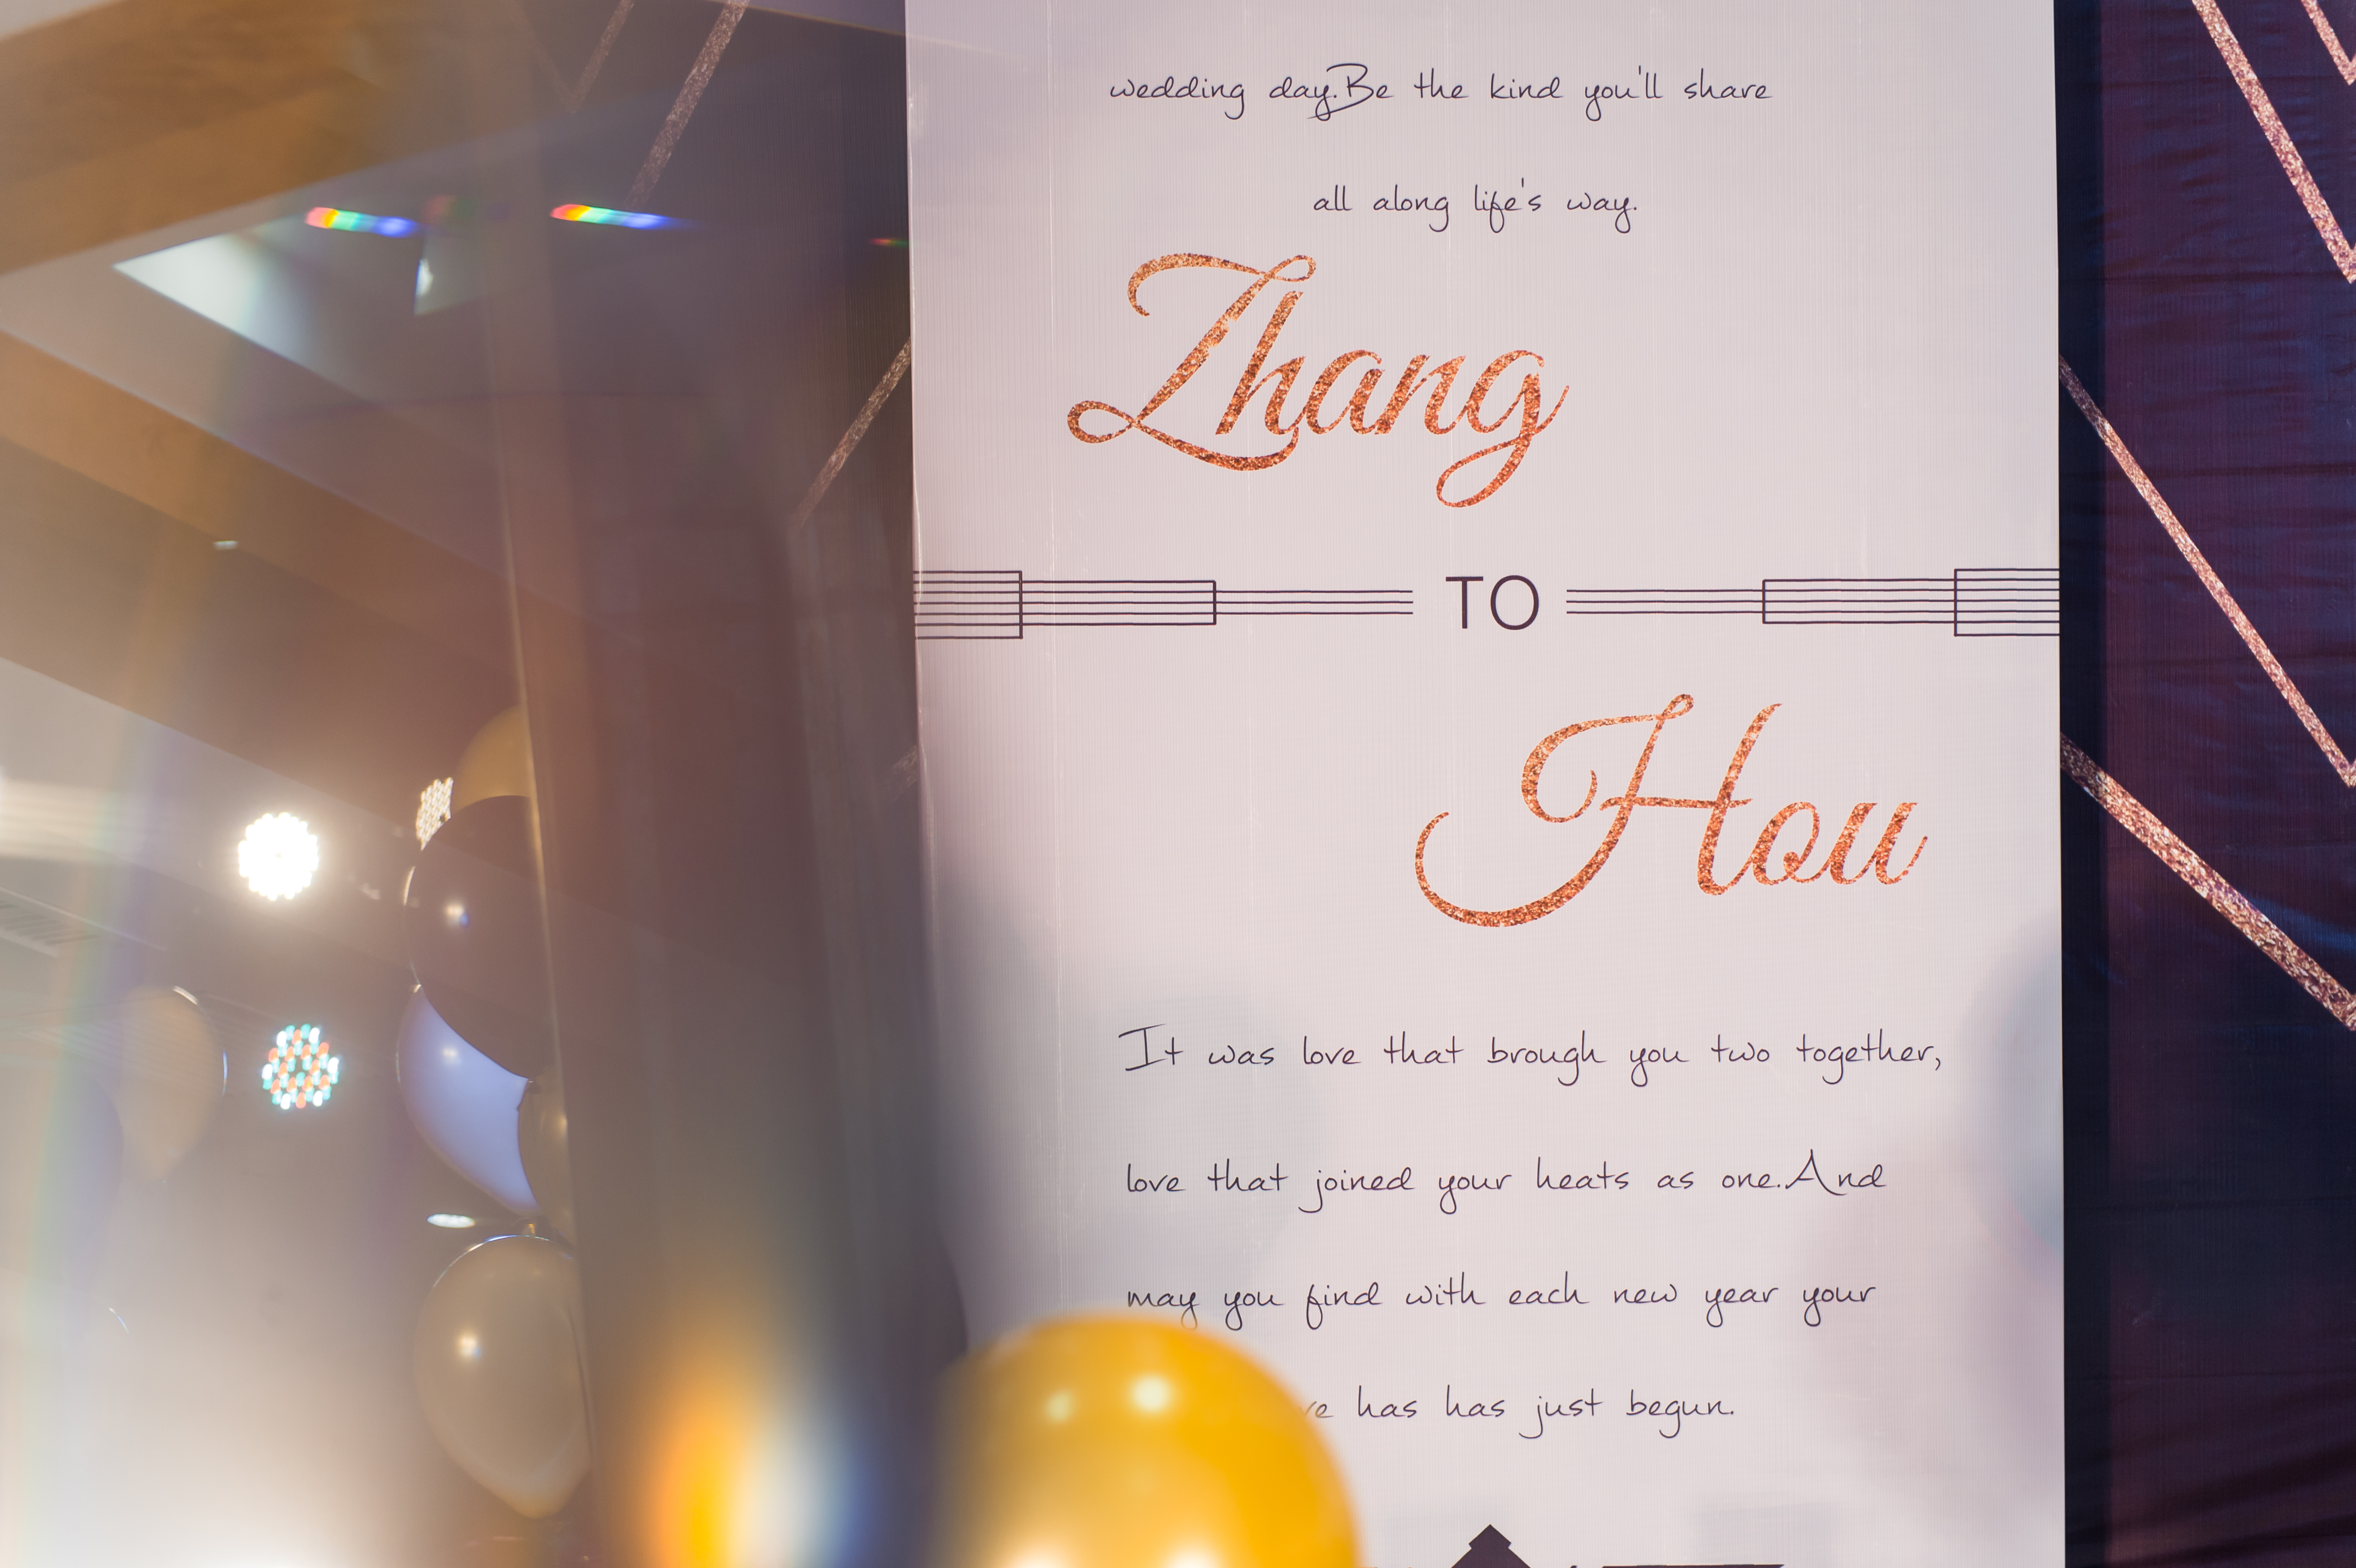 wedding day.Be the kind you'll share
all along life's way.
Zhang
TO
Hou
It was love that brough you two together,
love that joined your heats as one.And
may you find with each new year your
has has just begun.